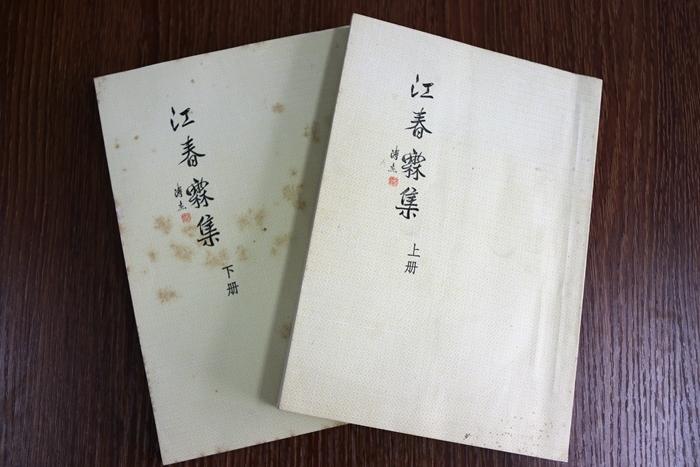 江春霖集
溥杰
下册
江春霖集
溥杰
上册